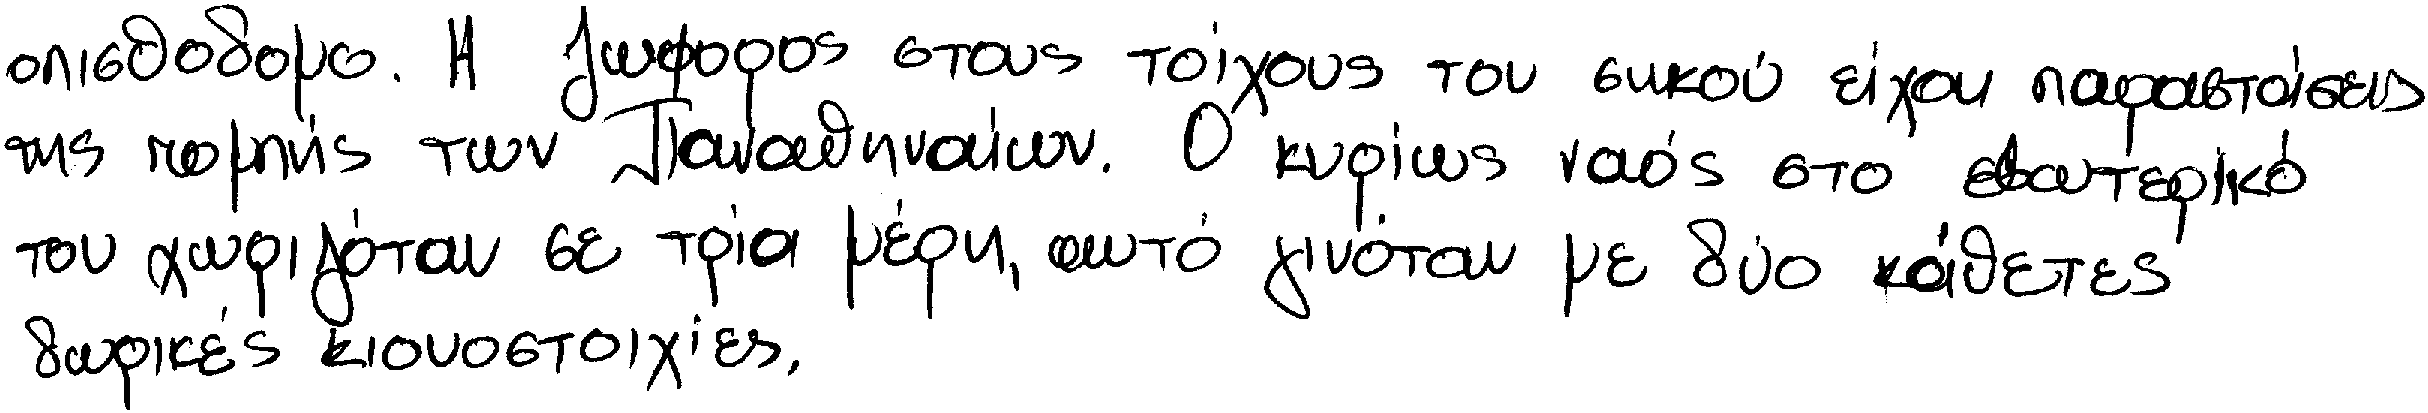 οπισθοδομο. Η ζωφορος στους τοίχους του σηκού είχαν παραστάσεις
της πομπής των Παναθηναίων. Ο κυρίως ναός στο εσωτερικό
του χωριζόταν σε τρία μέρη, αυτό γινόταν με δύο κάθετες
δωρικές κιονοστοιχίες.